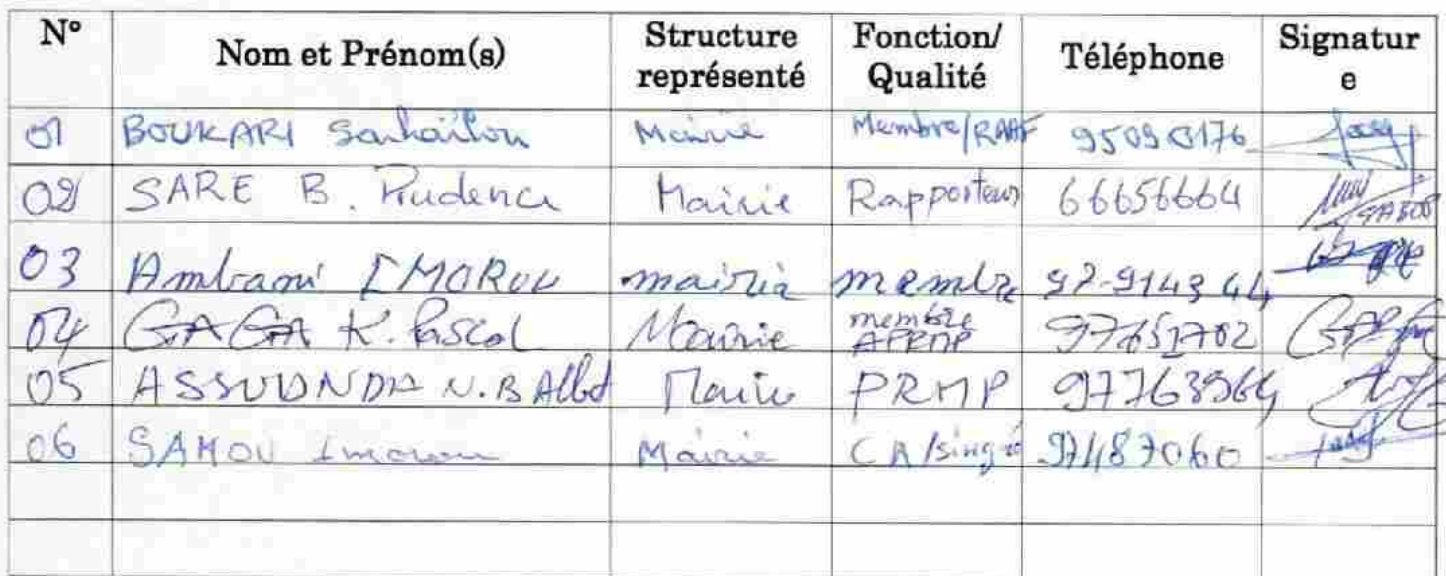 N° Nom et Prénom(s) Structure représenté Fonction/ Qualité Téléphone Signatur e
01 BOUKARI Mairie Membre/RAAF 95090176
02 SARE B. Prudence Mairie Rapporteur 66656664
03 Ambami IMOROU mairie membre 97-9143 44
04 GAGA K. Pascal Mairie membre APRMP 97651702
05 ASSOUNDA N.B Mairie PRMP 97763964
06 SAMOU Imorou Mairie 97487060